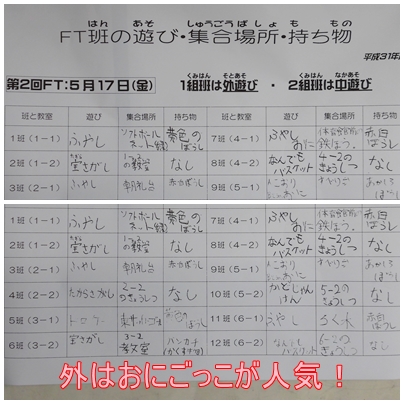 はん あそ しゅうごうばしょ も もの
FT班の遊び・集合場所・持ち物
平成31年
くみはん そとあそ くみはん なかあそ
第2回FT:5月17日(金) 1組班は外遊び ・ 2組班は中遊び
班と教室 遊び 集合場所 持ち物 班と教室 遊び 集合場所 持ち物
1班(1-1) ふやし ソフトボール 黄色の 7班(4-1) ふやし 鉄ぼう 赤白
ネット ぼうし おに ぼうし
2班(1-2) 宝さがし 教室 なし 8班(4-2) なんでも 4-2の なし
バスケット きょうしつ
3班(2-1) ふやし 朝礼台 赤白ぼうし 9班(5-1) こおり
1班(1-1) ふやし ソフトボール 黄色の 7班(4-1) ふやし 鉄ぼう 赤白
ネット ぼうし おに ぼうし
2班(1-2) 宝さがし 教室 なし 8班(4-2) なんでも 4-2の なし
バスケット きょうしつ
3班(2-1) ふやし 朝礼台 赤白ぼうし 9班(5-1) こおり
4班(2-2) たからさがし 2-2 なし 10班(5-2) 5-2の なし
のきょうしつ けん きょうしつ
5班(3-1) ドロケー 11班(6-1) ふやし ろく木 赤白
ぼうし
6班(3-2) 宝さがし 3-2 ハンカチ 12班(6-2) なんでも 6-2の なし
教室 バスケット きょうしつ
外はおにごっこが人気!